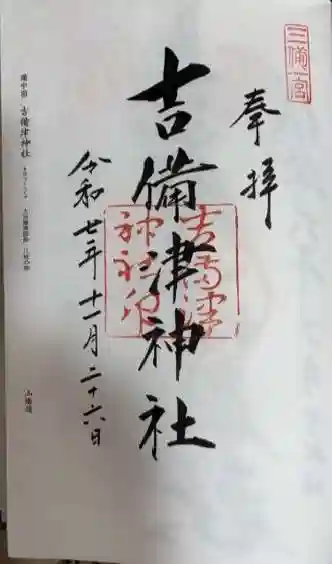 三備一宮
奉拝
吉備津神社
吉備津
神社之印
令和七年十一月二十六日
備中国 吉備津神社
山陽道